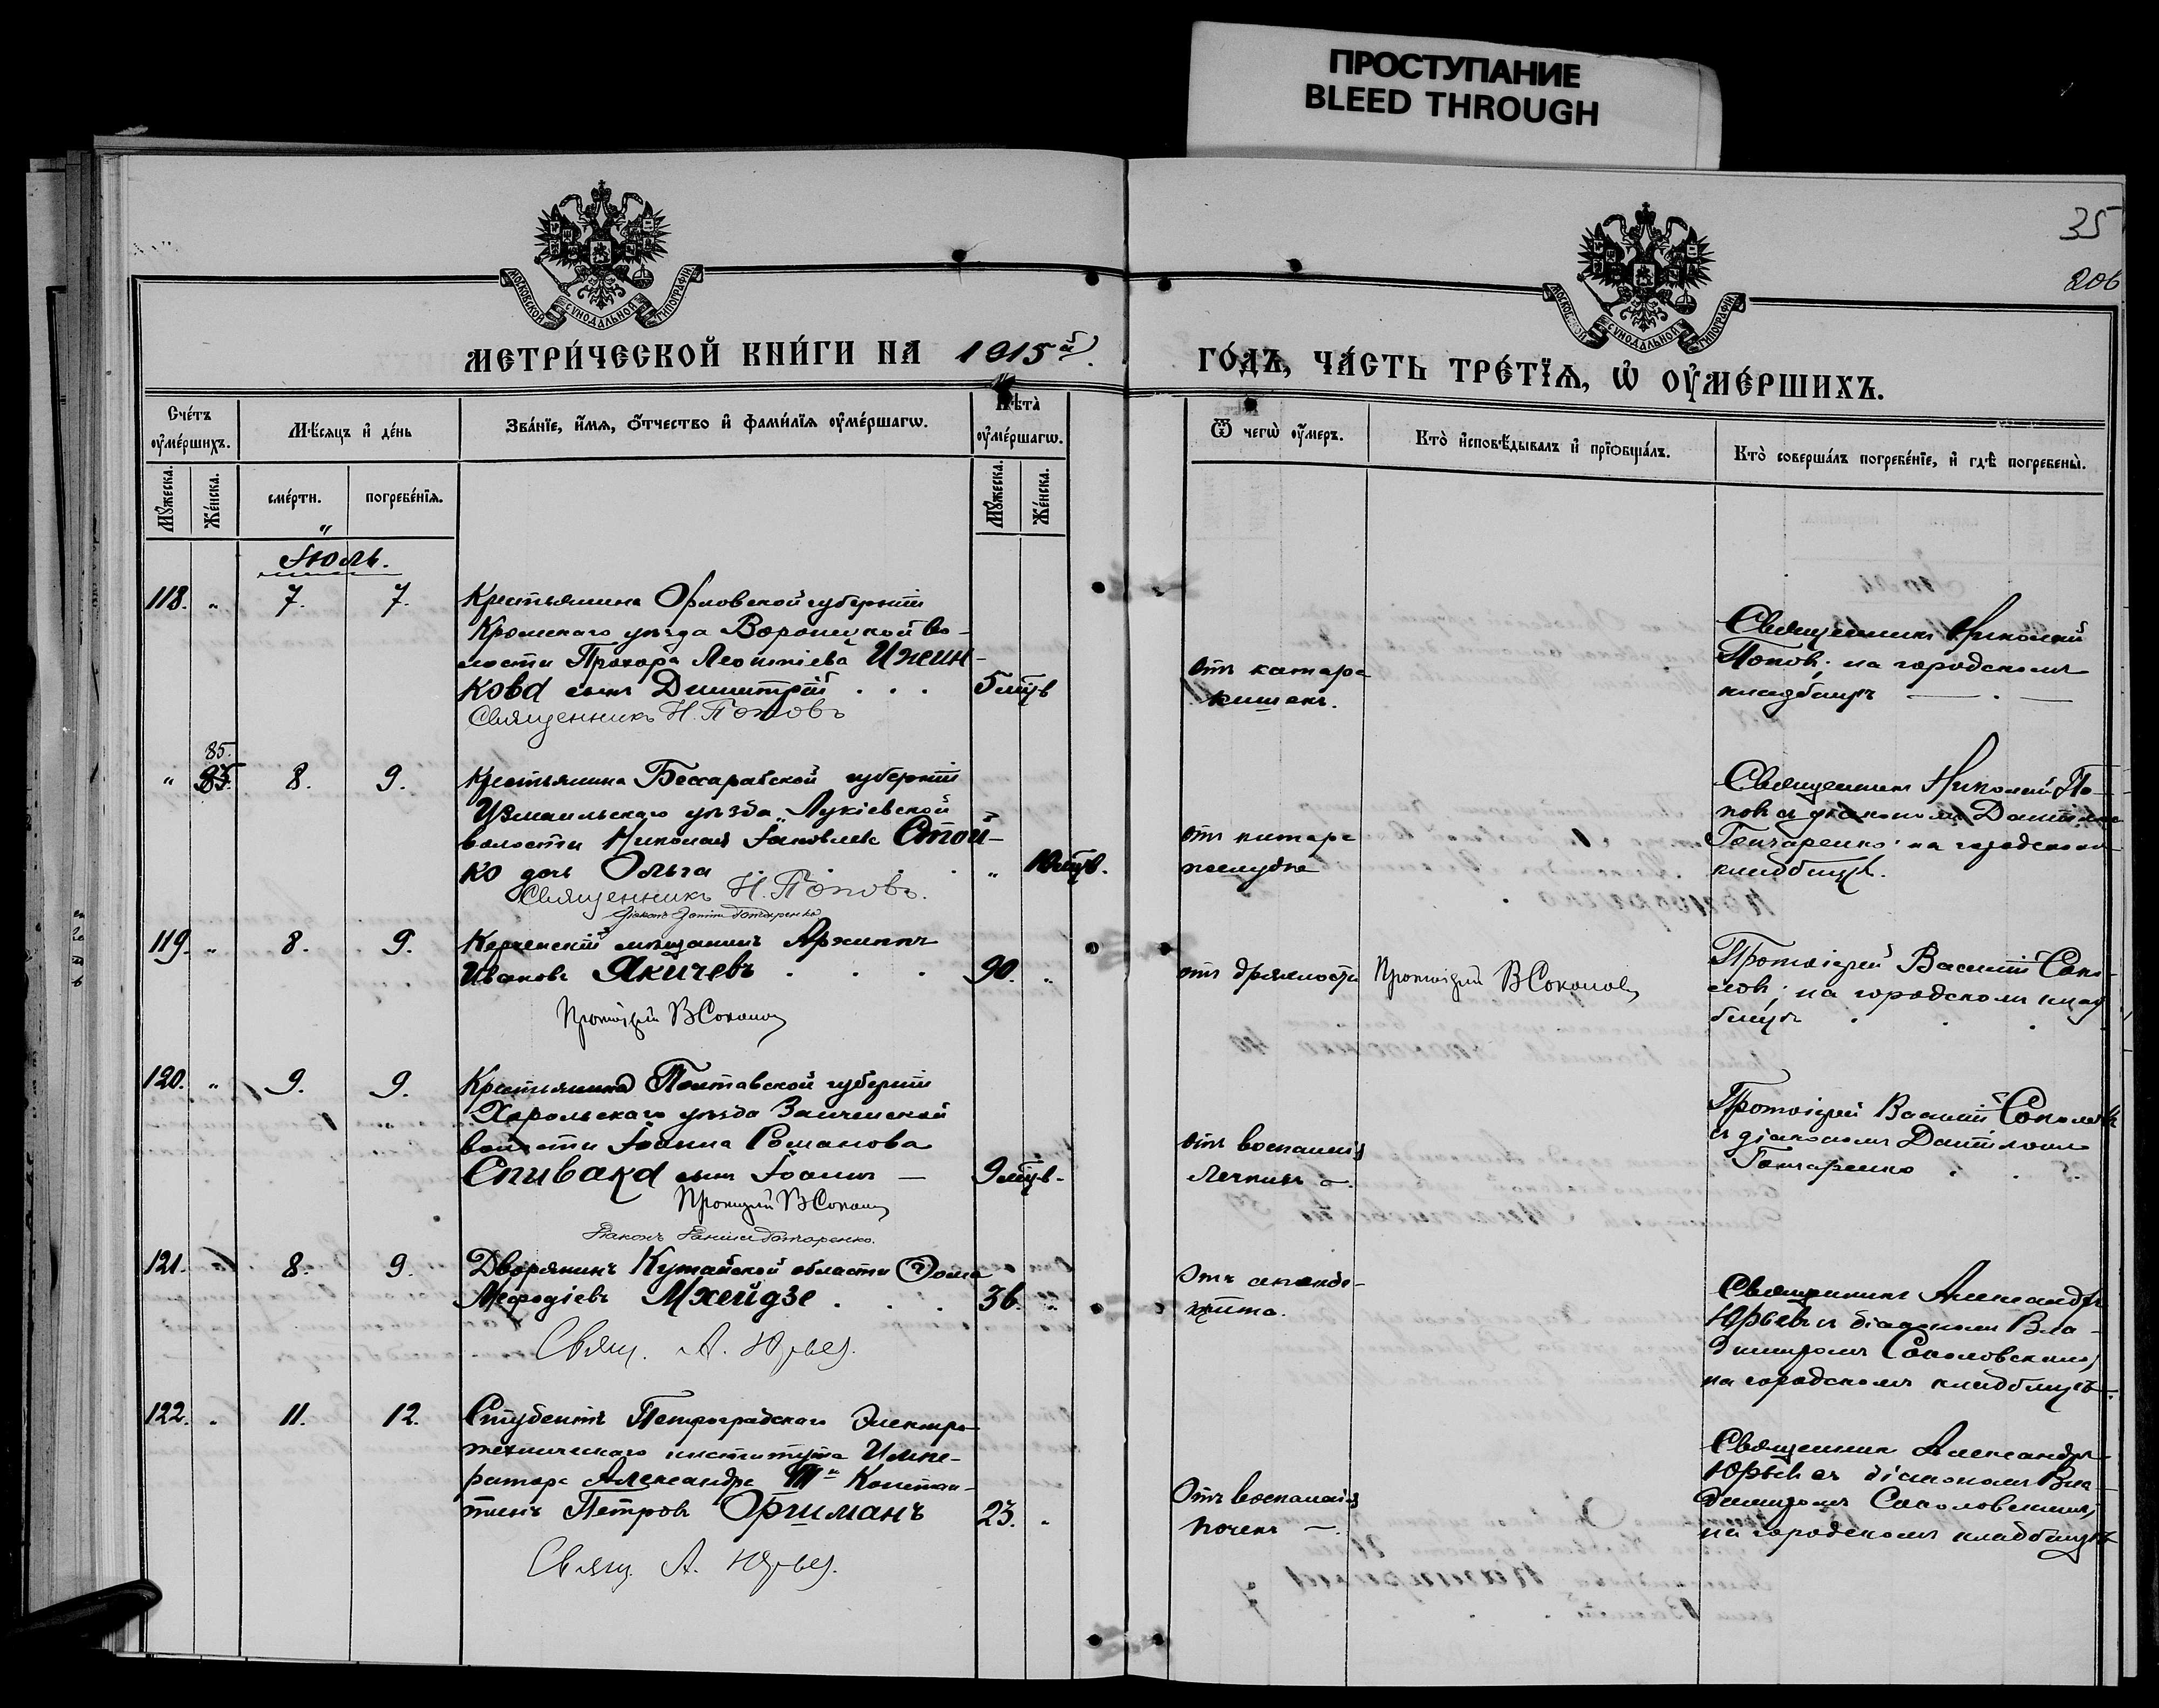 ПРОСТУПАНИЕ
BLEED THROUGH
35
206
МОСКОВСКОЙ СУНОДАЛЬНОЙ ТИПОГРАФІИ
МОСКОВСКОЙ СУНОДАЛЬНОЙ ТИПОГРАФІИ
МЕТРИ́ЧЕСКОЙ КНИ́ГИ НА 1915й
ГО́ДЪ, ЧА́СТЬ ТРЕ́ТЇѦ, Ѡ҆ ОУ҆МЕ́РШИХЪ.
Сче́тъ оу҆ме́ршихъ.
Мѣ́сяцъ и҆ де́нь
Зва́нїе, и҆́мя, ѻ҆́тчество и҆ фами́лїя оу҆ме́ршагѡ.
Лѣ́та оу҆ме́ршагѡ.
Ѿ чегѡ̀ оу҆́меръ.
Кто̀ и҆сповѣ́дывалъ и҆ прїѻбща́лъ.
Кто̀ соверша́лъ погребе́нїе, и҆ гдѣ̀ погребены̀.
Мꙋ́жеска.
Же́нска.
сме́рти.
погребе́нїя.
Мꙋ́жеска.
Же́нска.
Іюль.
118. „ 7. 7. Крестьянина Орловской губерніи
Кромскаго уѣзда Воронцкой во-
лости Прохора Леонтіева Ижин-
кова сынъ Димитрій . . . 5 мѣц.
Священникъ Н. Поповъ
отъ катара
кишекъ.
Священникъ Николай
Поповъ; на городскомъ
кладбищѣ
85.
„ 85. 8. 9. Крестьянина Бессарабской губерніи
Измаильскаго уѣзда, Лукіевской
волости Николая Іаковлева Стой-
ко дочь Ольга . . . „ 10 мѣц.
Священникъ Н. Поповъ.
Діаконъ Даніилъ Гончаренко
отъ катара
желудка
Священникъ Николай По-
повъ съ діакономъ Даніиломъ
Гончаренко; на городскомъ
кладбищѣ.
119. „ 8. 9. Керченскій мѣщанинъ Архиппъ
Ивановъ Якичевъ . . . 90. „
Протоіерей В Соколовъ
отъ дряхлости
Протоіерей В Соколовъ
Протоіерей Василій Соко-
ловъ; на городскомъ клад-
бищѣ . . .
120. „ 9. 9. Крестьянина Полтавской губерніи
Хорольскаго уѣзда
волости Іоанна Романова
Спивака сынъ Іоаннъ — 9 мѣц.
Протоіерей В Соколовъ
Діаконъ Даніилъ Гончаренко.
отъ воспаленія
легкихъ —.
Протоіерей Василій Соколовъ
съ діакономъ Даніиломъ
Гончаренко . . .
121. 8. 9. Дворянинъ Кутайской области Ѳома
Меѳодіевъ Мхейдзе . . . 36. „
Свящ. А. Юрьев.
Отъ аппенди-
цита.
Священникъ Александръ
Юрьевъ съ діакономъ Вла-
димиромъ Соколовскимъ,
на городскомъ кладбищѣ.
122. „ 11. 12. Студентъ Петроградскаго Электро-
техническаго института Импе-
ратора Александра III Констан-
тинъ Петровъ Оргиманъ 23. „
Свящ. А. Юрьев.
Отъ воспаленія
почекъ —.
Священникъ Александръ
Юрьевъ съ діакономъ Вла-
димиромъ Соколовскимъ,
на городскомъ кладбищѣ